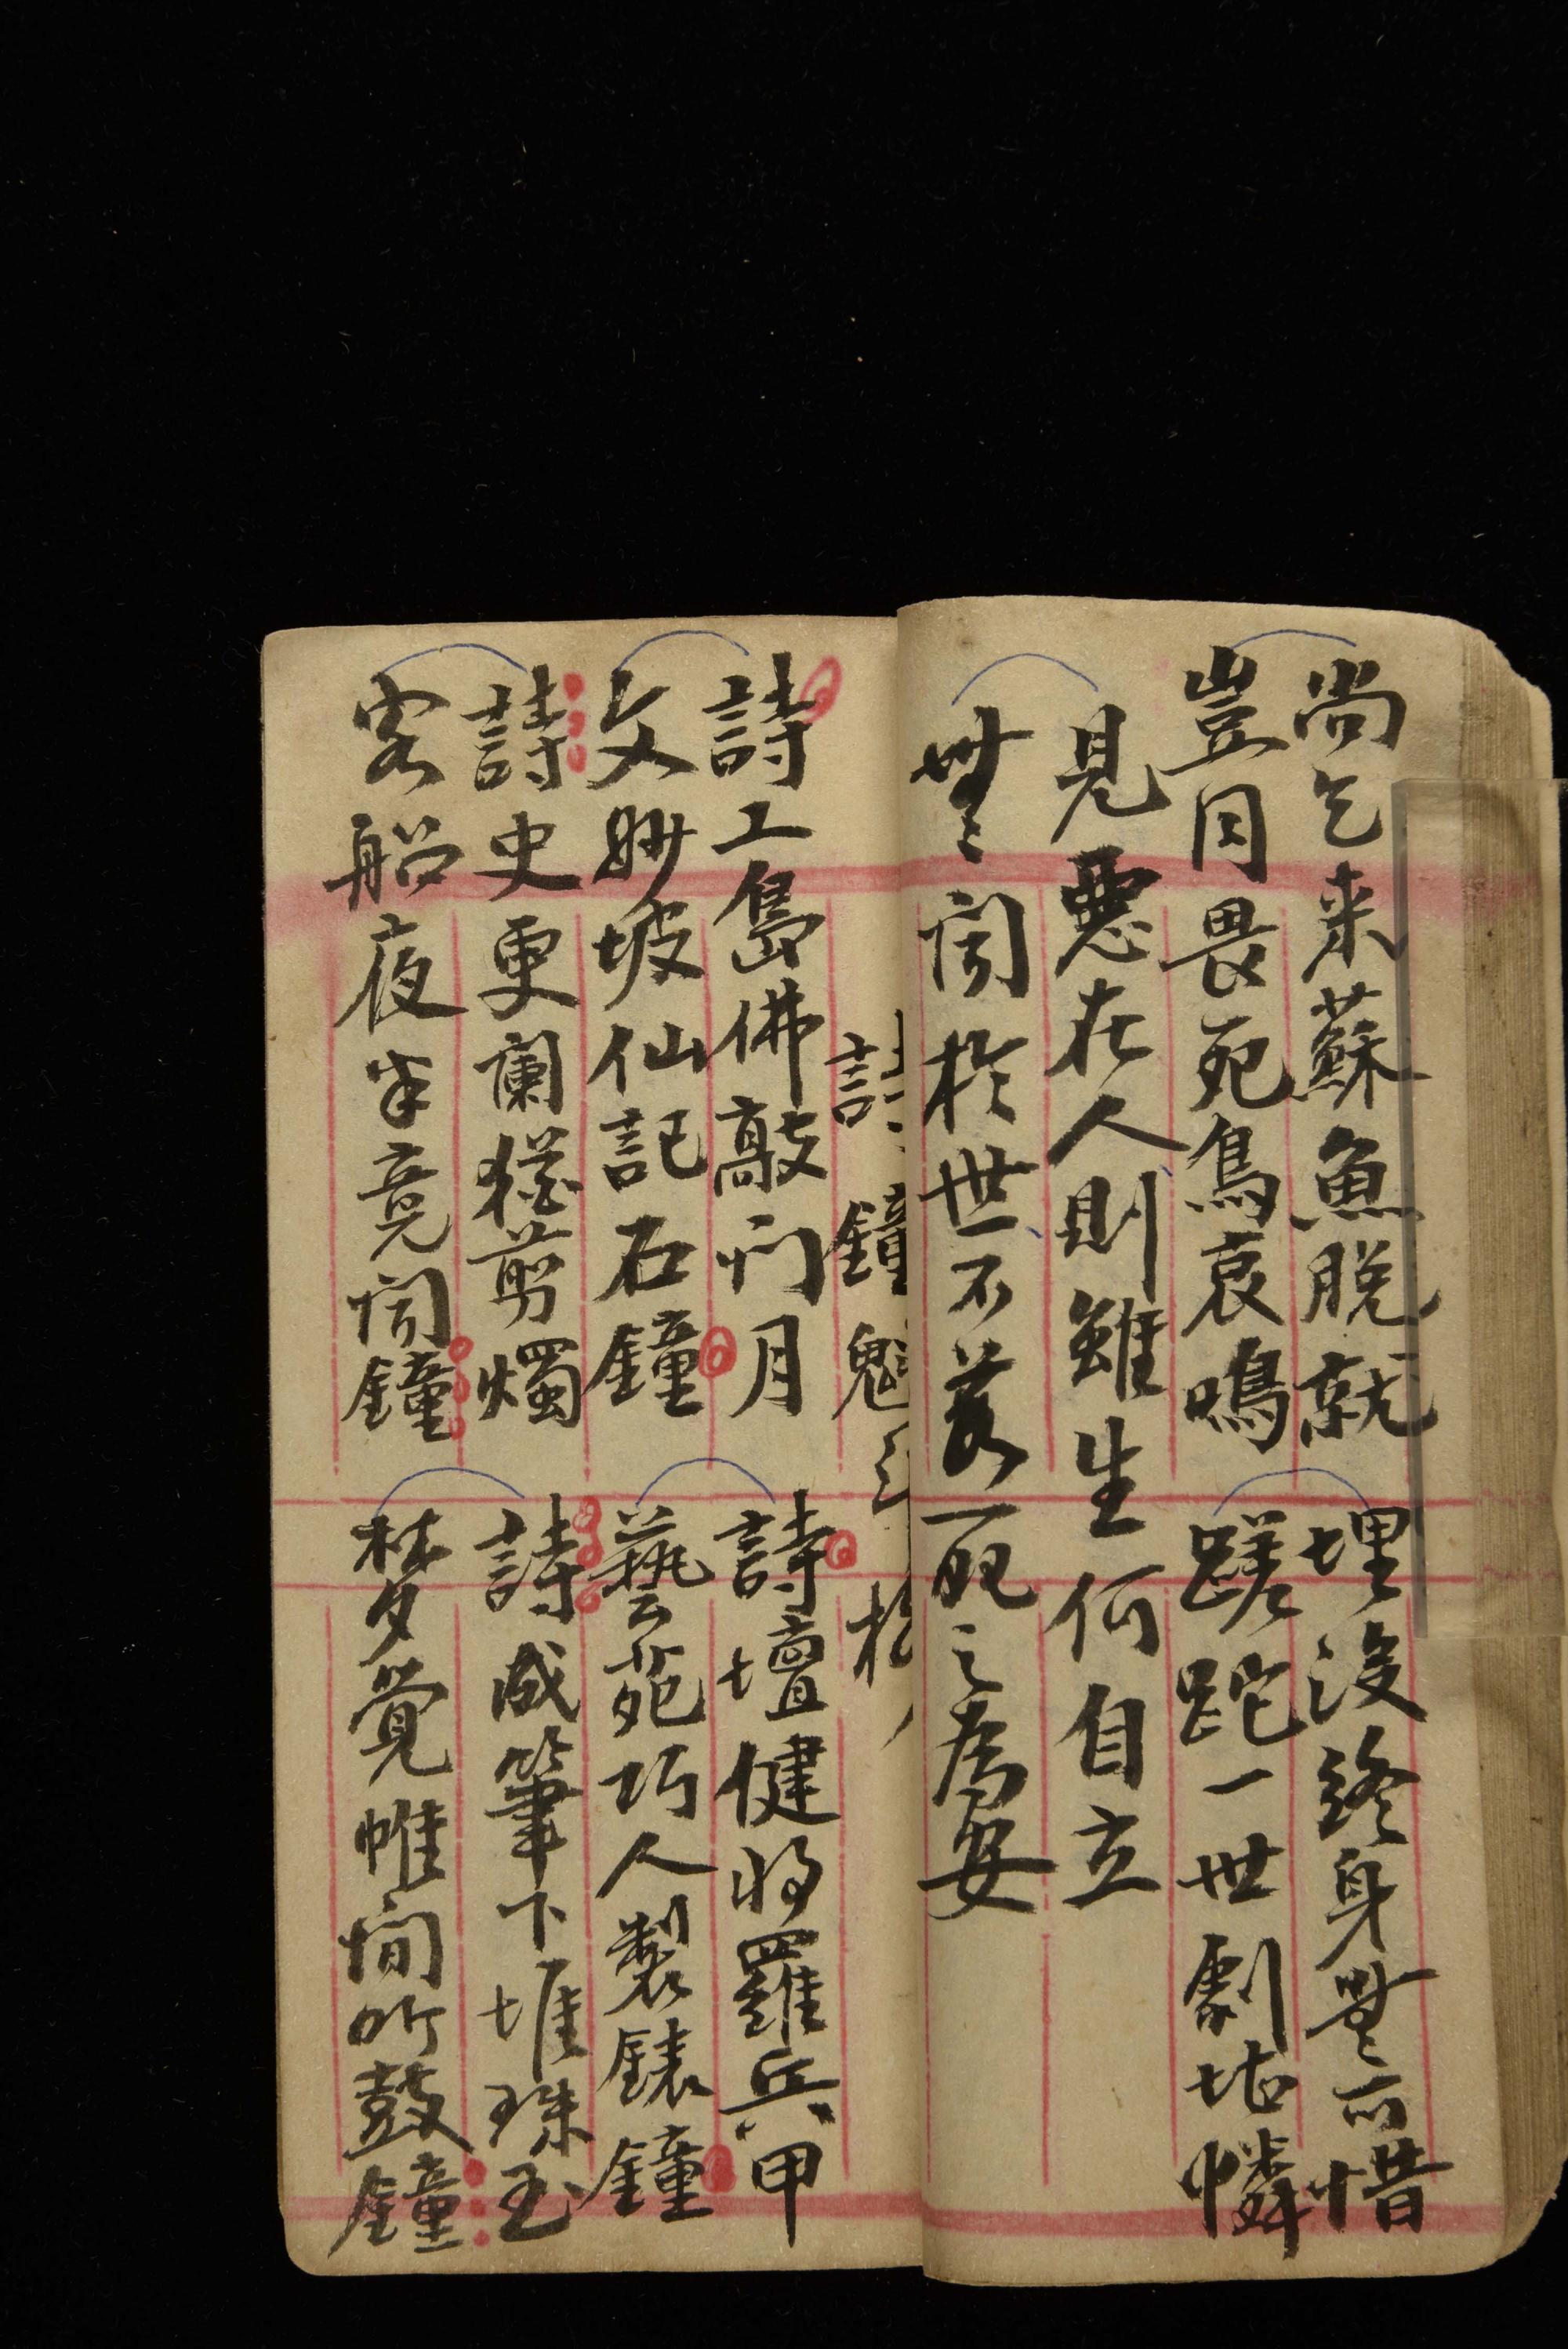 尚乞来蘇魚脱就
豈因畏死鳥哀鳴
埋没終身無所惜
蹉跎一世劇堪憐
見惡在人則雖生何自立
無聞於世不若死之為安
詩 鐘 魁斗格
詩工島佛敲門月
文妙坡仙記石鐘
詩壇健将羅兵甲
藝苑巧人製錶鐘
詩史更闌猶剪燭
客船夜半竟聞鐘
詩成筆下堆珠玉
梦覚帷间听鼓鐘